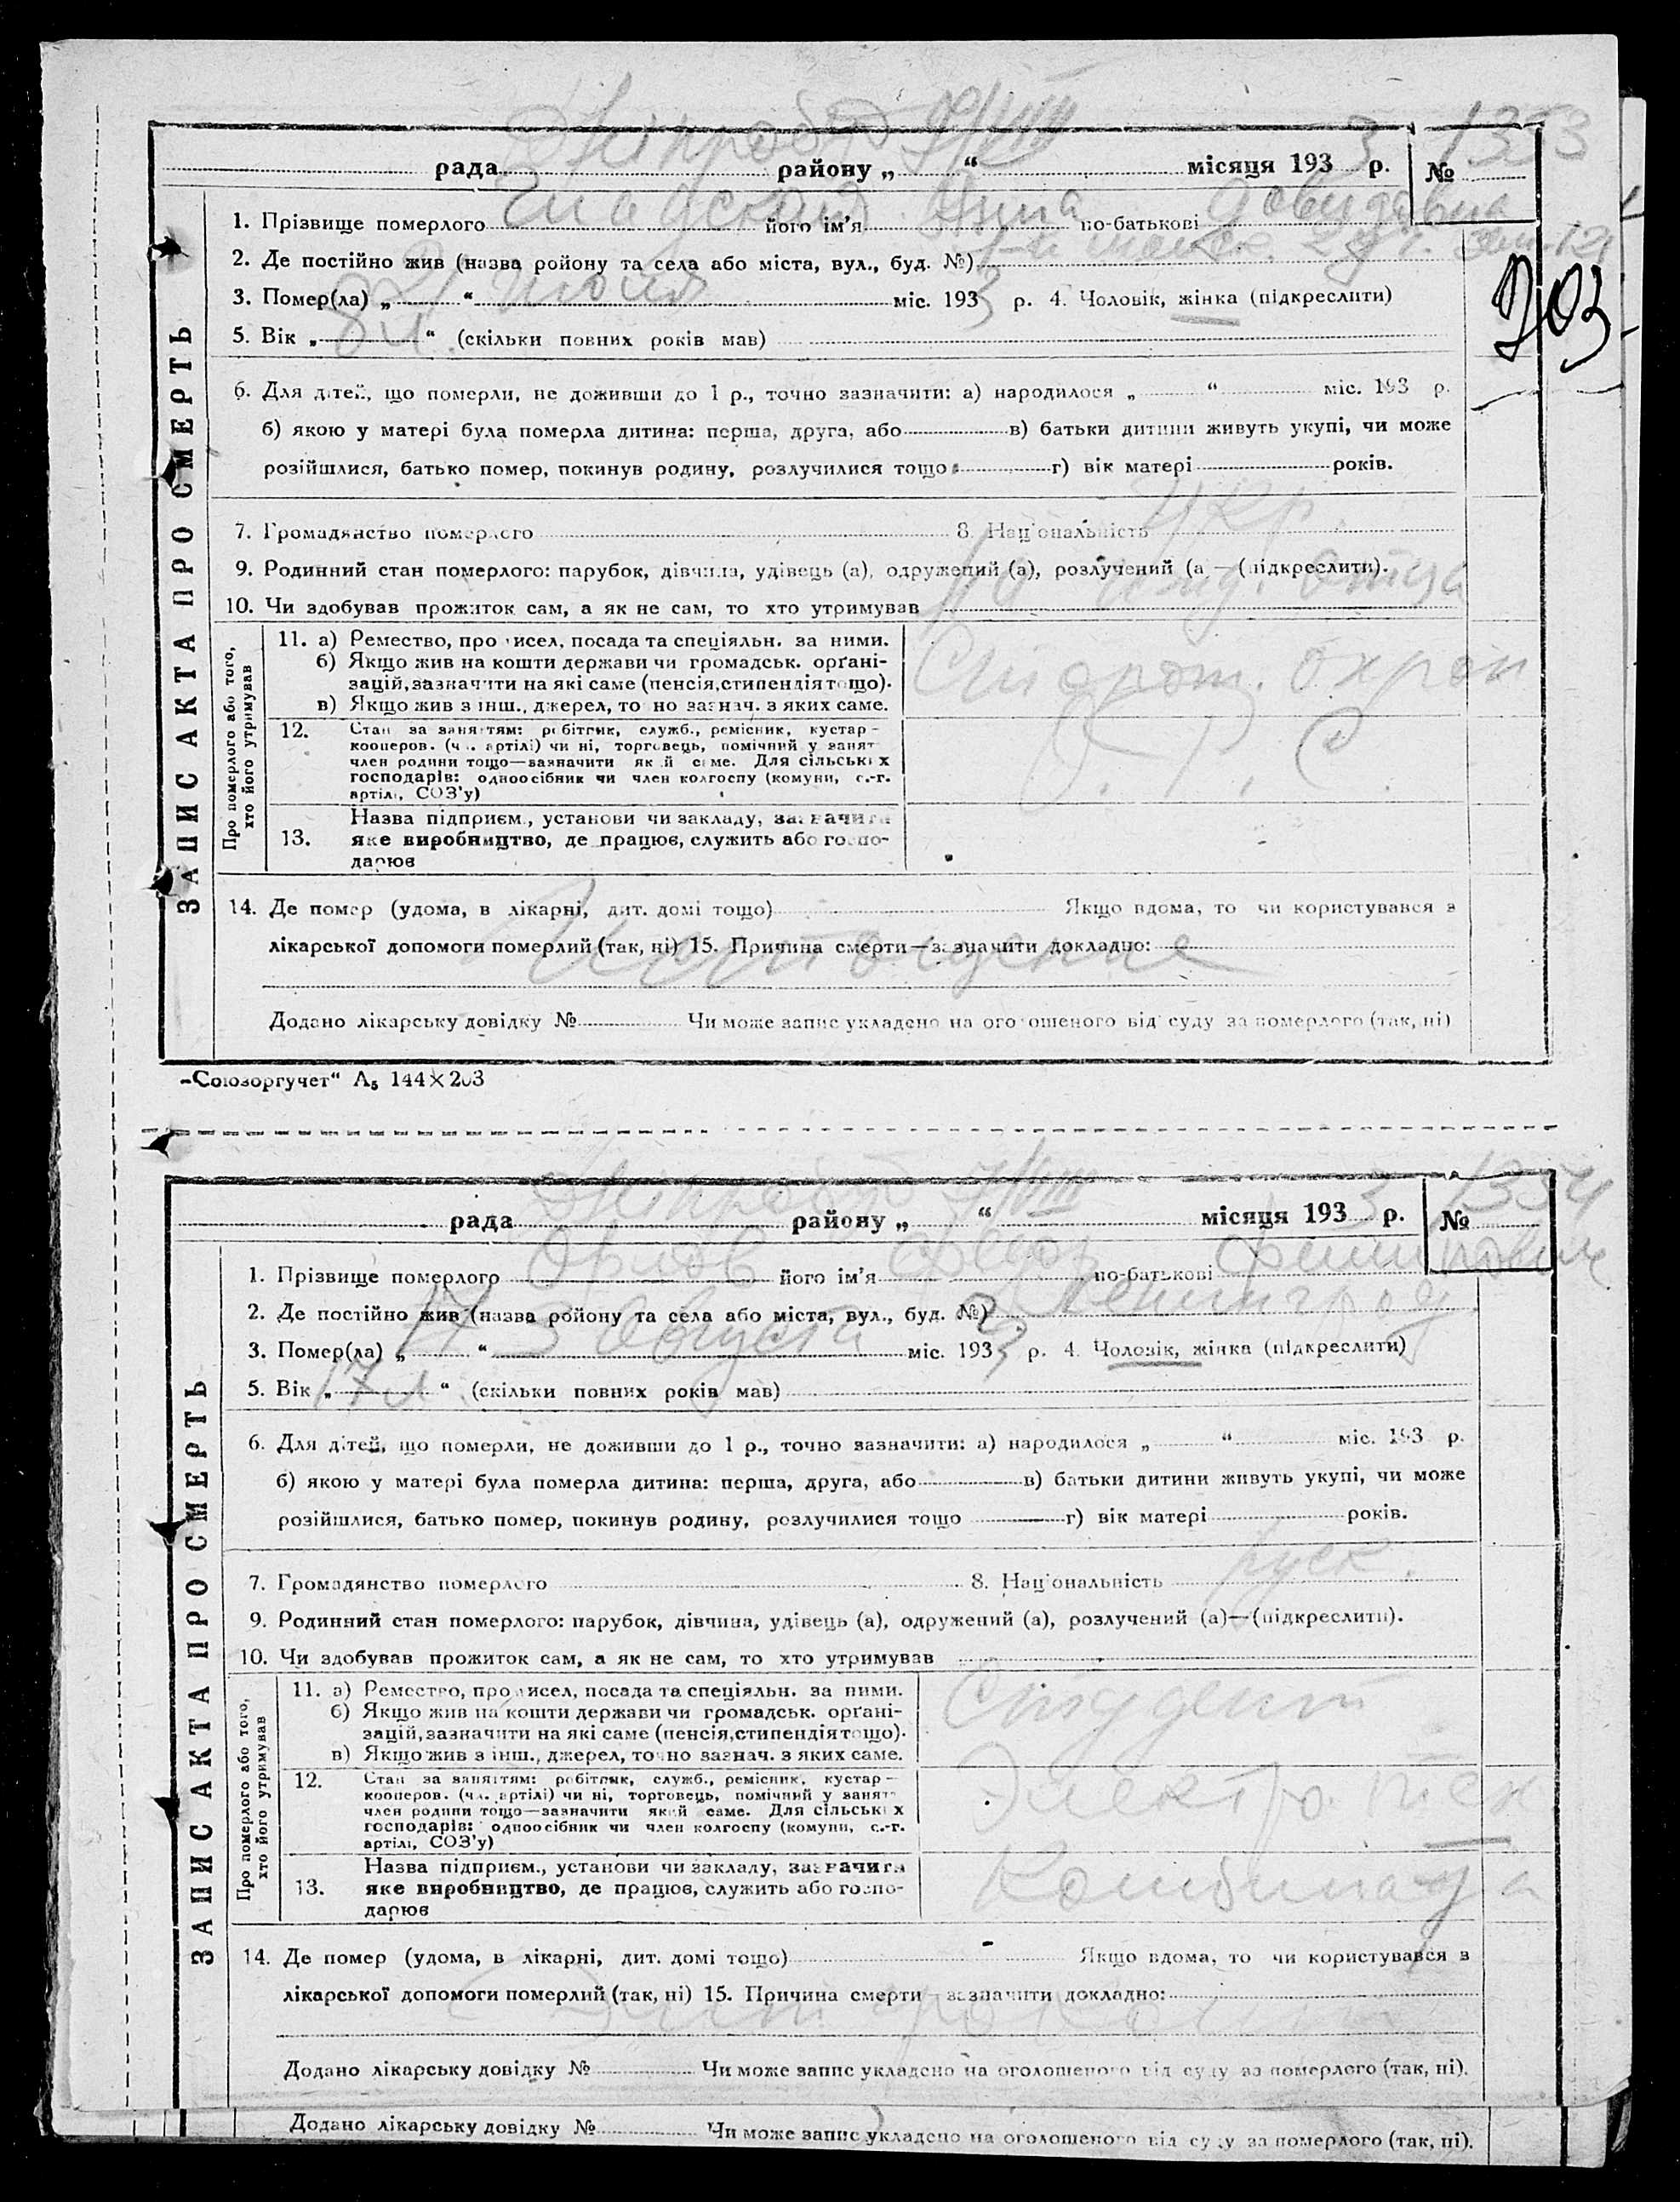 рада району „ “ місяця 1933 р. № 1353
1. Прізвище померлого його ім'я Анна по-батькові Давидовна
2. Де постійно жив (назва ройону та села або міста, вул., буд. №)
3. Помер(ла) „ “ міс. 1933 р. 4. Чоловік, жінка (підкреслити)
203
5. Вік „ “ (скільки повних років мав)
6. Для дітей, що померли, не доживши до 1 р., точно зазначити: а) народилося „ “ міс. 193 р.
б) якою у матері була померла дитина: перша, друга, або в) батьки дитини живуть укупі, чи може
розійшлися, батько помер, покинув родину, розлучилися тощо г) вік матері років.
7. Громадянство померлого 8. Національність укр.
9. Родинний стан померлого: парубок, дівчина, удівець (а), одружений (а), розлучений (а)—(підкреслити).
10. Чи здобував прожиток сам, а як не сам, то хто утримував отца
ЗАПИС АКТА ПРО СМЕРТЬ
Про померлого або того, хто його утримував
11. а) Ремество, промисел, посада та спеціяльн. за ними.
б) Якщо жив на кошти держави чи громадськ. орґані-
зацій, зазначити на які саме (пенсія, стипендія тощо).
в) Якщо жив з інш., джерел, точно зазнач. з яких саме.
12. Стан за заняттям: робітник, служб., ремісник, кустар—
кооперов. (чл. артілі) чи ні, торговець, помічний у занят
член родини тощо—зазначити який саме. Для сільських
господарів: одноосібник чи член колгоспу (комуни, с.-г.
артілі, СОЗ'у)
13. Назва підприєм., установи чи закладу, зазначити
яке виробництво, де працює, служить або госпо-
дарює
14. Де помер (удома, в лікарні, дит. домі тощо) Якщо вдома, то чи користувався з
лікарської допомоги померлий (так, ні) 15. Причина смерти—зазначити докладно:
Истощение
Додано лікарську довідку № Чи може запис укладено на оголошеного від суду за померлого (так, ні)
„Союзоргучет“ А₅ 144×203
рада району „ “ місяця 1933 р. № 1354
1. Прізвище померлого Орлов його ім'я Федор по-батькові
2. Де постійно жив (назва ройону та села або міста, вул., буд. №) Ленинград
3. Помер(ла) „ “ 3 августа міс. 1933 р. 4. Чоловік, жінка (підкреслити)
5. Вік „ 17 л. “ (скільки повних років мав)
6. Для дітей, що померли, не доживши до 1 р., точно зазначити: а) народилося „ “ міс. 193 р.
б) якою у матері була померла дитина: перша, друга, або в) батьки дитини живуть укупі, чи може
розійшлися, батько помер, покинув родину, розлучилися тощо г) вік матері років.
7. Громадянство померлого 8. Національність руск.
9. Родинний стан померлого: парубок, дівчина, удівець (а), одружений (а), розлучений (а)—(підкреслити).
10. Чи здобував прожиток сам, а як не сам, то хто утримував
ЗАПИС АКТА ПРО СМЕРТЬ
Про померлого або того, хто його утримував
11. а) Ремество, промисел, посада та спеціяльн. за ними.
б) Якщо жив на кошти держави чи громадськ. орґані-
зацій, зазначити на які саме (пенсія, стипендія тощо).
в) Якщо жив з інш., джерел, точно зазнач. з яких саме.
Студент
12. Стан за заняттям: робітник, служб., ремісник, кустар—
кооперов. (чл. артілі) чи ні, торговець, помічний у занят
член родини тощо—зазначити який саме. Для сільських
господарів: одноосібник чи член колгоспу (комуни, с.-г.
артілі, СОЗ'у)
Электро. тех
13. Назва підприєм., установи чи закладу, зазначити
яке виробництво, де працює, служить або госпо-
дарює
Комбината
14. Де помер (удома, в лікарні, дит. домі тощо) Якщо вдома, то чи користувався з
лікарської допомоги померлий (так, ні) 15. Причина смерти—зазначити докладно:
Додано лікарську довідку № Чи може запис укладено на оголошеного від суду за померлого (так, ні).
Додано лікарську довідку № Чи може запис укладено на оголошеного від суду за померлого (так, ні).